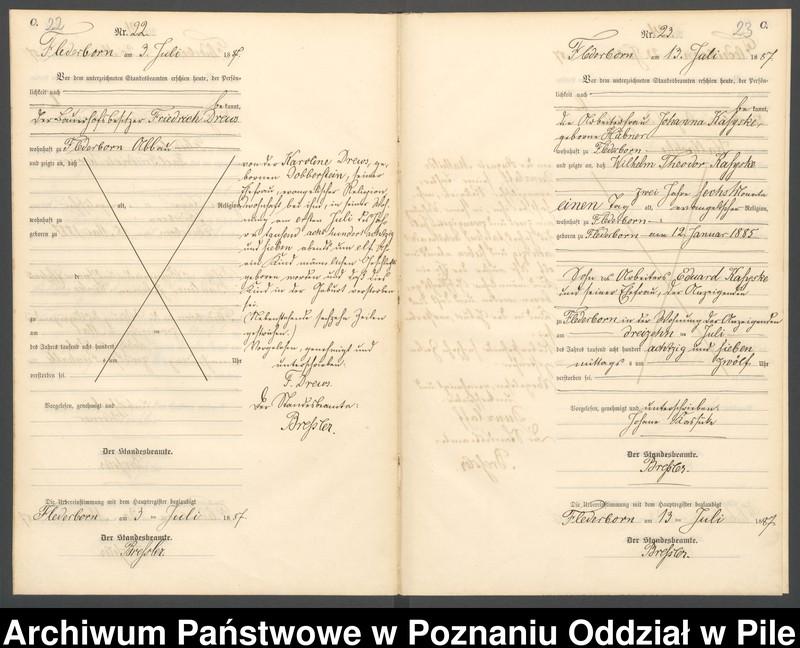 C. 22
Nr. 22
Flederborn am 3. Juli 1887.
Vor dem unterzeichneten Standesbeamten erschien heute, der Persön-
lichkeit nach
bekannt,
der Bauerhofsbesitzer Friedrich Drews
wohnhaft zu Flederborn Abbau
und zeigte an, daß
alt, Religion,
wohnhaft zu
geboren zu
zu
am ten
des Jahres tausend acht hundert
um Uhr
verstorben sei.
Vorgelesen, genehmigt und
Der Standesbeamte.
Die Uebereinstimmung mit dem Hauptregister beglaubigt
Flederborn am 3 ten Juli 1887.
Der Standesbeamte.
Breßler.
von der Karoline Drews, ge-
borenen Dobberstein, seiner
Ehefrau, evangelischer Religion,
wohnhaft bei ihm, in seiner Woh-
nung am ersten Juli des Jah-
res tausend acht hundert achtzig
und sieben abends um elf Uhr
ein Kind männlichen Geschlechts
geboren worden und daß dies
Kind in der Geburt verstorben
sei.
(Nebenstehend sechzehn Zeilen
gestrichen.)
Vorgelesen, genehmigt und
unterschrieben.
F. Drews.
Der Standesbeamte:
Breßler.
23 C.
Nr. 23.
Flederborn am 13. Juli 1887.
Vor dem unterzeichneten Standesbeamten erschien heute, der Persön-
lichkeit nach
bekannt,
die Arbeiterfrau Johanna Kaßzske,
geborene Hübner
wohnhaft zu Flederborn
und zeigte an, daß Wilhelm Theodor Kaßzske
zwei Jahre sechs Monate
einen Tag alt, evangelischer Religion,
wohnhaft zu Flederborn
geboren zu Flederborn am 12. Januar 1885
Sohn des Arbeiters Eduard Kaßzske
und seiner Ehefrau, der Anzeigenden
zu Flederborn in der Wohnung der Anzeigenden
am dreizehnten Juli
des Jahres tausend acht hundert achtzig und sieben
mittags um zwölf Uhr
verstorben sei.
Vorgelesen, genehmigt und unterschrieben.
Der Standesbeamte.
Breßler.
Die Uebereinstimmung mit dem Hauptregister beglaubigt
Flederborn am 13 ten Juli 1887
Der Standesbeamte.
Breßler.
Archiwum Państwowe w Poznaniu Oddział w Pile